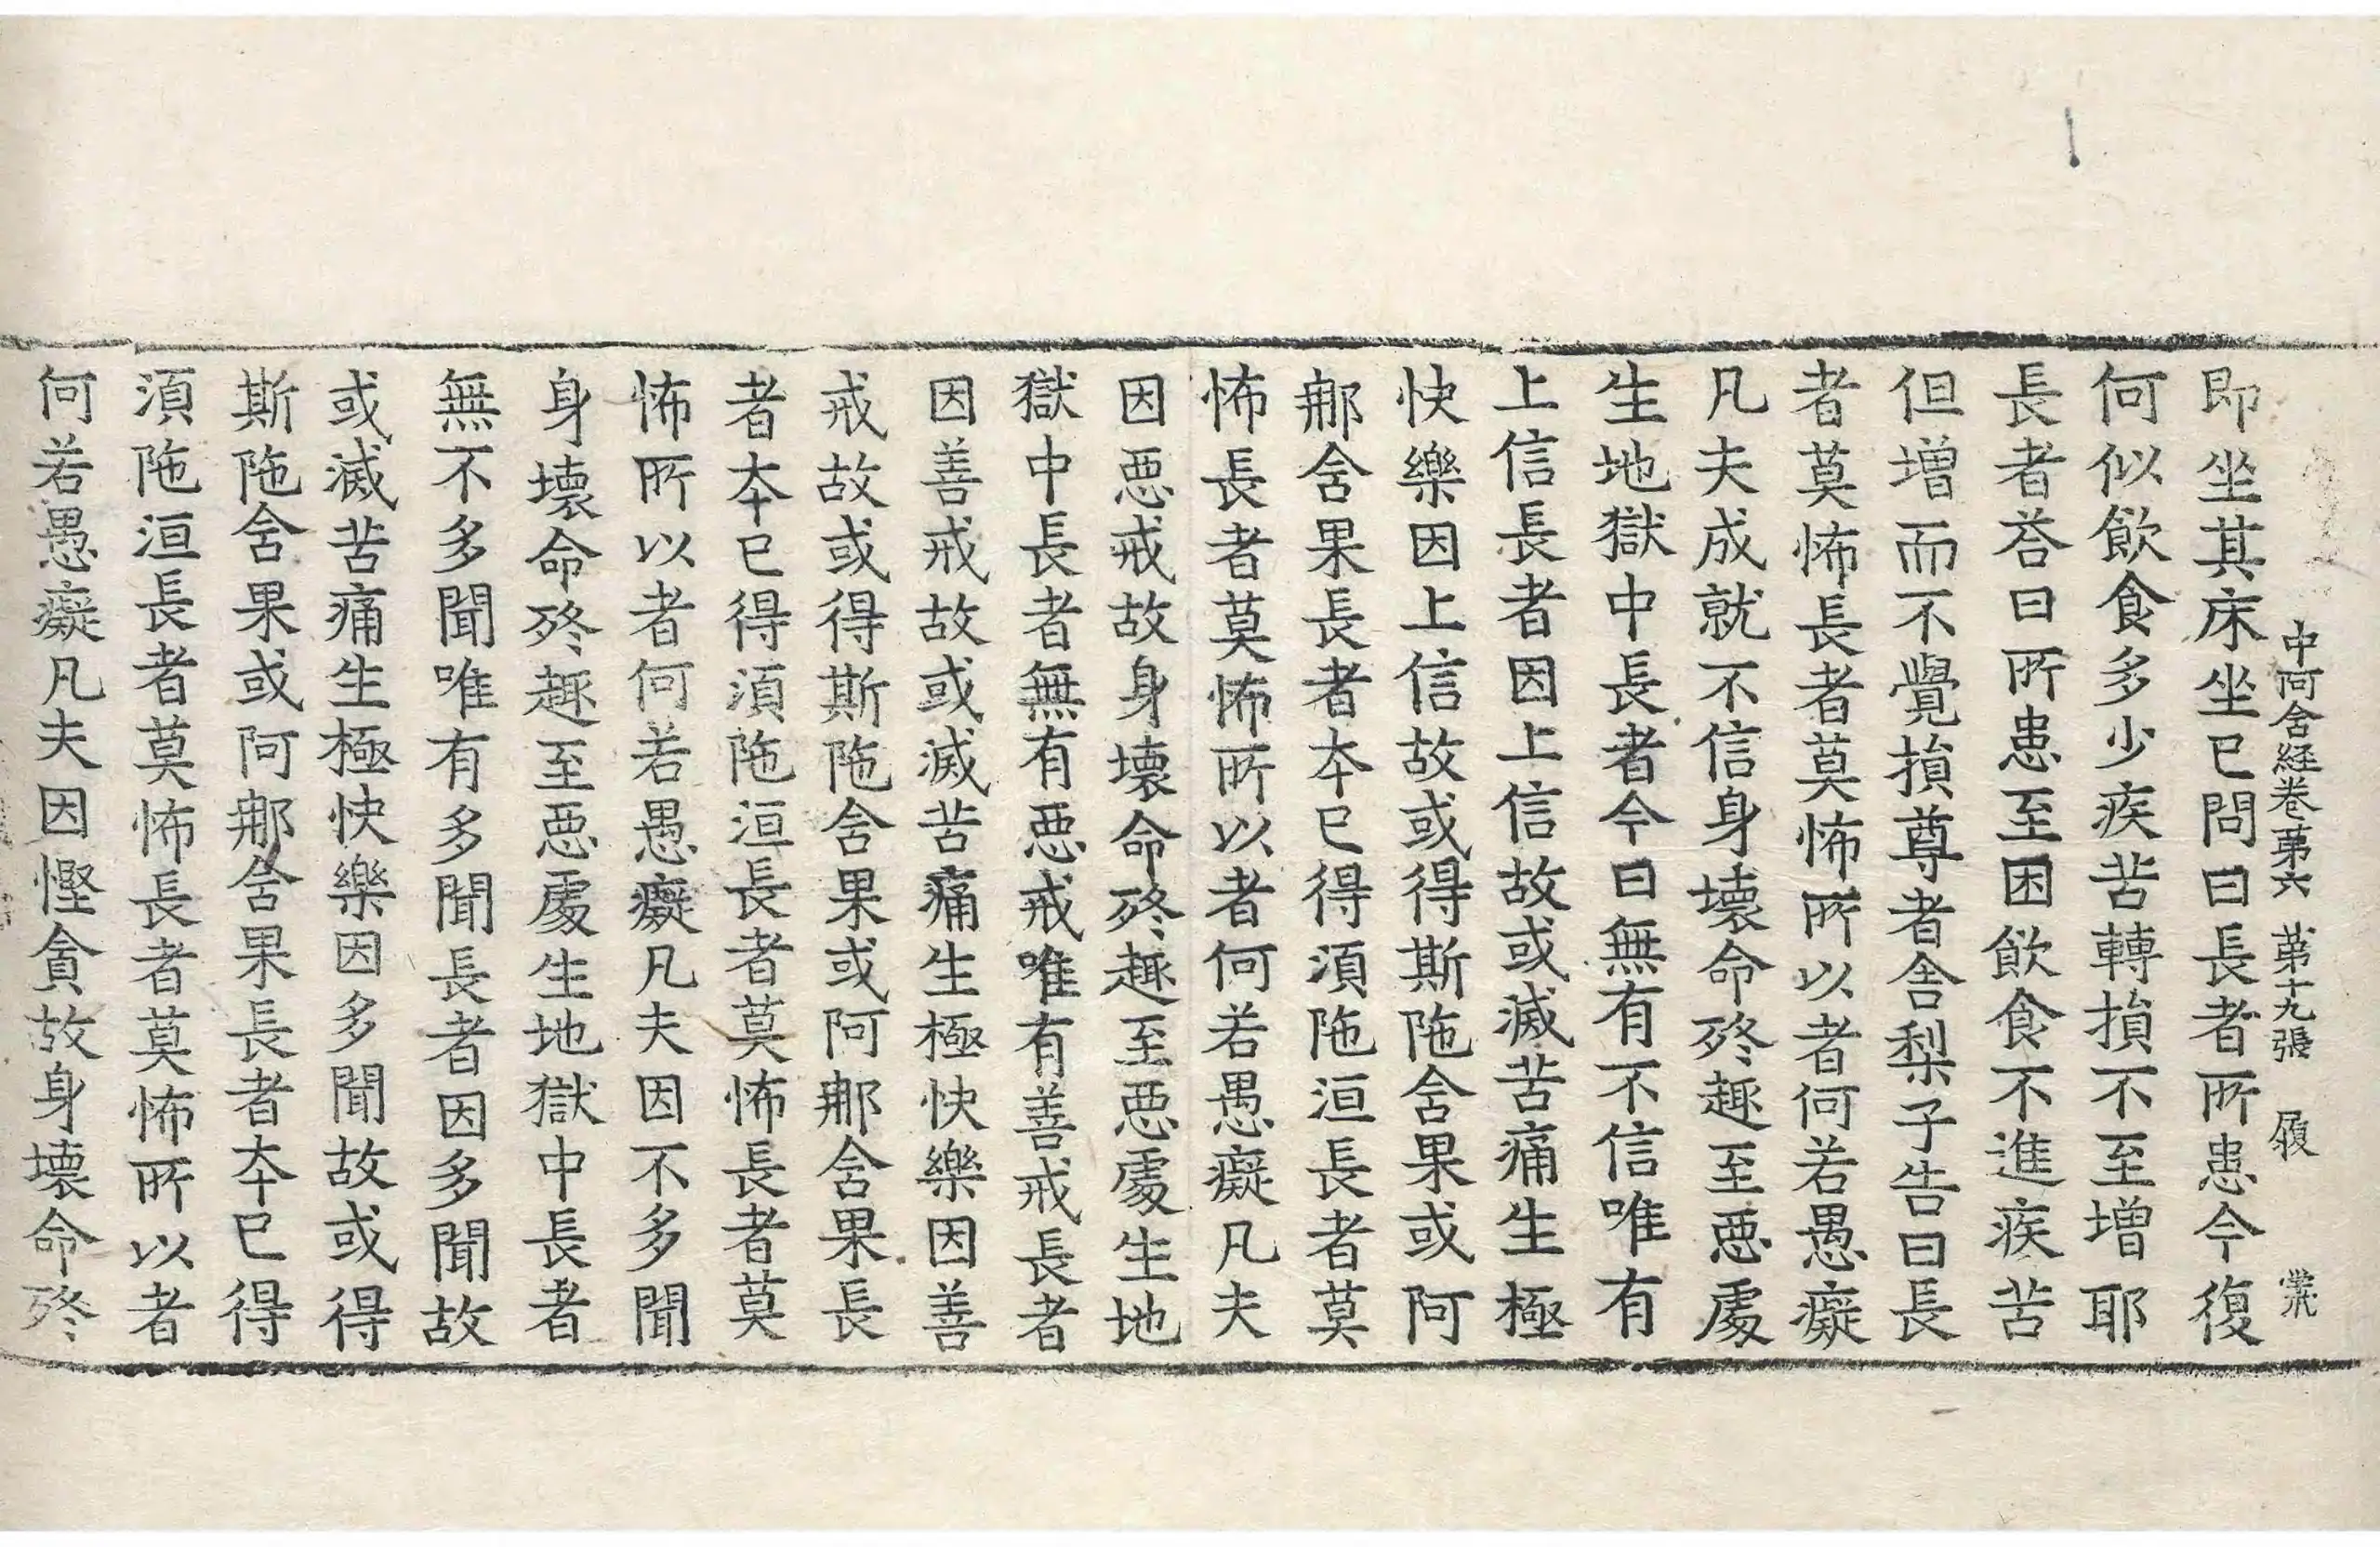 中阿含経卷第六 第十九張 履
即坐其床坐已問曰長者所患今復
何似飲食多少疾苦轉損不至增耶
長者荅曰所患至困飲食不進疾苦
但增而不覺損尊者舍梨子告曰長
者莫怖長者莫怖所以者何若愚癡
凡夫成就不信身壞命終趣至惡處
生地獄中長者今日無有不信唯有
上信長者因上信故或滅苦痛生極
快樂因上信故或得斯陁含果或阿
那含果長者本已得須陁洹長者莫
怖長者莫怖所以者何若愚癡凡夫
因惡戒故身壞命終趣至惡處生地
獄中長者無有惡戒唯有善戒長者
因善戒故或滅苦痛生極快樂因善
戒故或得斯陁含果或阿那含果長
者本已得須陁洹長者莫怖長者莫
怖所以者何若愚癡凡夫因不多聞
身壞命終趣至惡處生地獄中長者
無不多聞唯有多聞長者因多聞故
或滅苦痛生極快樂因多聞故或得
斯陁含果或阿那含果長者本已得
須陁洹長者莫怖長者莫怖所以者
何若愚癡凡夫因慳貪故身壞命終